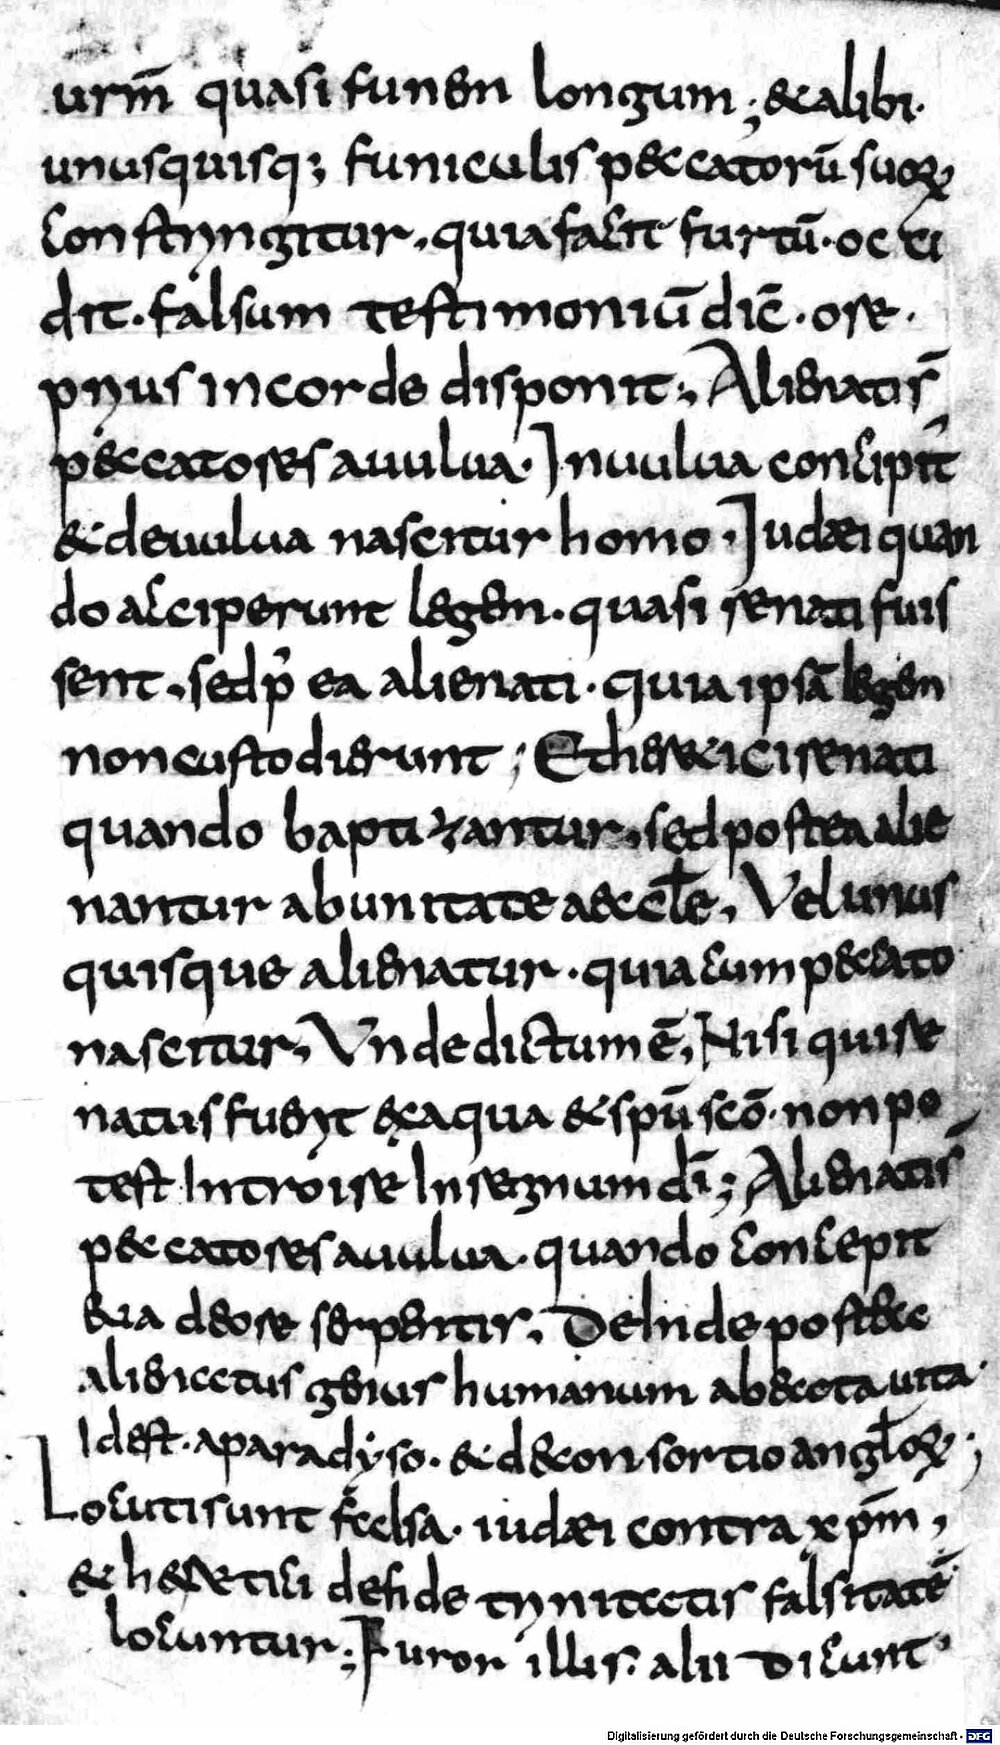 urm̄ quasi funem longum ; & alibi ·
unusquisq; funiculis peccatorū suoꝝ
constringitur , quia facit furtū · occi
dit · falsum testimoniū dic̄ · ore ·
prius in corde disponit ; Alienatis̄
peccatores a uulua · In uulua concipit̄
& de uulua nascitur homo · Iudæi quan
do acciperunt legem · quasi renati fuis
sent , sed p̄ ea alienati · quia ipsā legem
non custodierunt ; Et heretici renati
quando baptizantur , sed postea alie
nantur ab unitate aeccłe , Vel unus
quisque alienatur · quia cum peccato
nascitur , Vnde dictum ē , Nisi quis re
natus fuerit ex aqua & spū scō · non po
test Introire In regnum dī ; Alienatis̄
peccatores a uulua · quando concepit
eua de ore serpentis , Dehinde post hec
alienatus genus humanum ab ęcta uita
Id est · a paradyso · & de consortio angłoꝝ ;
Locuti sunt falsa · iudæi contra xp̄m ,
& heretici de fide trinitatis falsitatē
locuntur ; Furor illis · alii dicunt ·
Digitalisierung gefördert durch die Deutsche Forschungsgemeinschaft - DFG